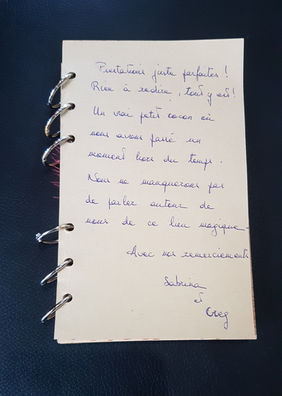 Prestations juste parfaites !
Rien à redire, tout y est !
Un vrai petit cocon où
nous avons passé un
moment hors du temps.
Nous ne manquerons pas
de parler autour de
nous de ce lieu magique
Avec nos remerciements
Sabrina
et
Greg